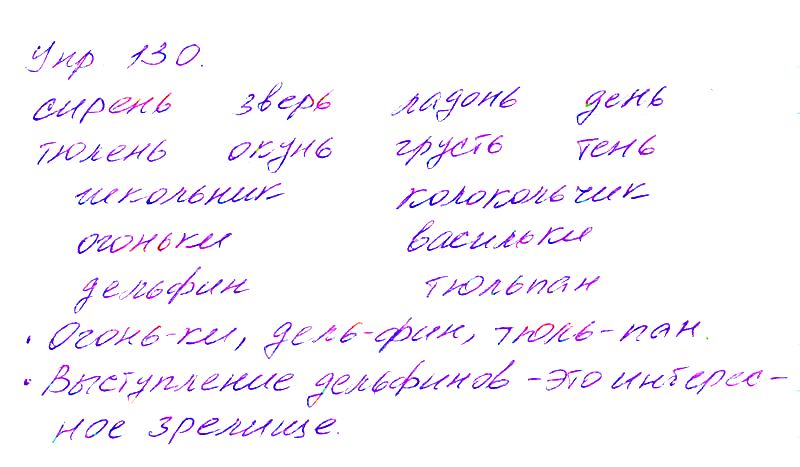 Упр 130.
сирень зверь ладонь день
тюлень окунь грусть тень
школьник колокольчик
огоньки васильки
дельфин тюльпан
· Огонь-ки, дель-фин, тюль-пан.
· Выступление дельфинов - это интерес-
ное зрелище.